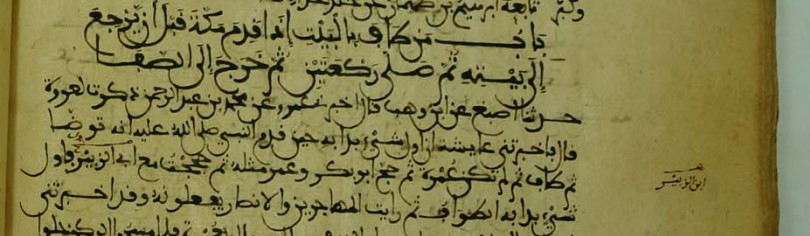 وكبر تابعه ابرهيم بن طهمان عن خلد
باب من طاف بالبيت إذا قدم مكة قبل أن يرجع
إلى بيته ثم صلى ركعتين ثم خرج إلى الصفا
حدثنا اصبغ عن ابن وهب قال اخبرني عمرو عن محمد بن عبد الرحمن ذكرت لعروة
قال فاخبرتني عايشة ان اول شيء بدا به حين قدم النبي صلى الله عليه انه توضا
ثم طاف ثم لم تكن عمرة ثم حج ابو بكر وعمر مثله ثم حججت مع ابي الزبير فاول
شيء بدا به الطواف ثم رايت المهاجرين والانصار يفعلونه وقد اخبرتني
ابن الزبير